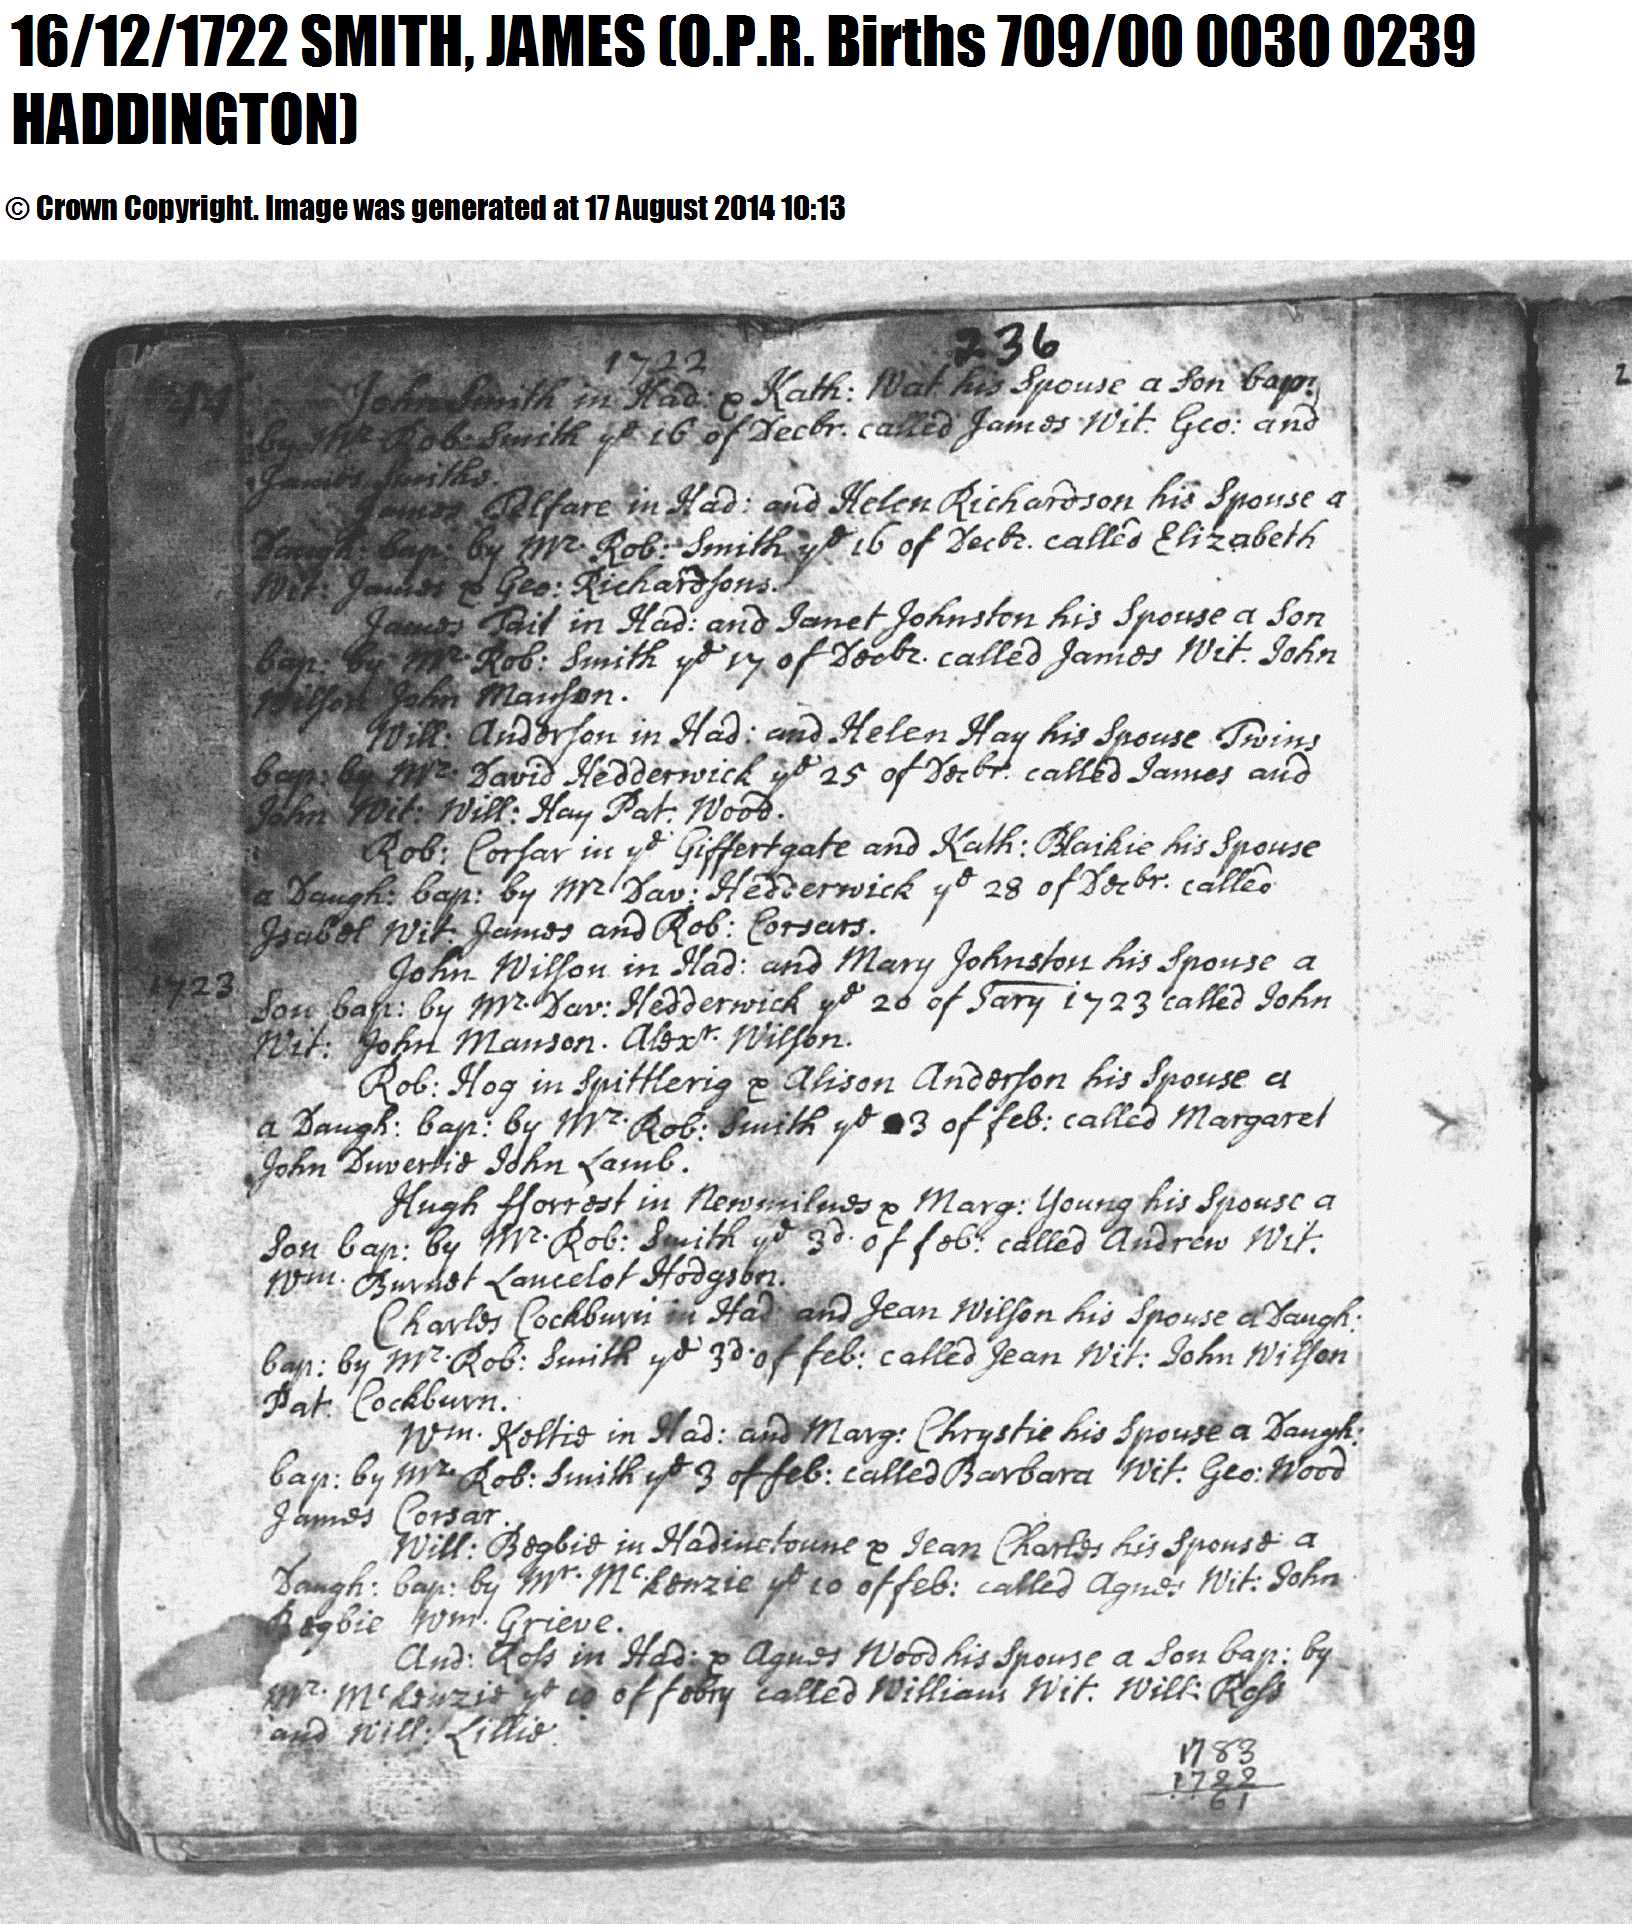 16/12/1722 SMITH, JAMES (O.P.R. Births 709/00 0030 0239
HADDINGTON)
© Crown Copyright. Image was generated at 17 August 2014 10:13
236
1722
John Smith in Had: & Kath: Wat his Spouse a Son bap:
by Mr. Rob: Smith ye 16 of Decbr. called James Wit. Geo: and
James Smiths.
James Telfare in Had: and Helen Richardson his Spouse a
Daugh: bap: by Mr. Rob: Smith ye 16 of Decbr. called Elizabeth
Wit: James & Geo: Richardsons.
James Tait in Had: and Janet Johnston his Spouse a Son
bap: by Mr. Rob: Smith ye 17 of Decbr. called James Wit. John
Wilson John Manson.
Will: Anderson in Had: and Helen Hay his Spouse Twins
bap: by Mr. David Hedderwick ye 25 of Decbr. called James and
John Wit: Will: Hay Pat: Wood.
Rob: Corsar in ye Giffertgate and Kath: Blaikie his Spouse
a Daugh: bap: by Mr Dav: Hedderwick ye 28 of Decbr. called
Isabel Wit. James and Rob: Corsars.
John Wilson in Had: and Mary Johnston his Spouse a
1723
Son bap: by Mr. Dav: Hedderwick ye 20 of Jary 1723 called John
Wit: John Manson. Alexr. Wilson.
Rob: Hog in Spittlerig & Alison Anderson his Spouse a
a Daugh: bap: by Mr. Rob: Smith ye 3 of feb: called Margaret
John Duvertie John Lamb.
Hugh fforrest in Newmilnes & Marg: Young his Spouse a
Son bap: by Mr. Rob: Smith ye 3d. of feb: called Andrew Wit.
Wm. Burnet Lancelot Hodgson.
Charles Cockburn in Had and Jean Wilson his Spouse a Daugh:
bap: by Mr. Rob: Smith ye 3d. of feb: called Jean Wit: John Wilson
Pat: Cockburn.
Wm. Keltie in Had: and Marg: Chrystie his Spouse a Daugh:
bap: by Mr. Rob: Smith ye 3 of feb: called Barbara Wit. Geo: Wood
James Corsar.
Will: Begbie in Hadingtoune & Jean Charles his Spouse a
Daugh: bap: by Mr. Mc.kenzie ye 10 of feb: called Agnes Wit: John
Begbie Wm. Grieve.
And: Ross in Had: & Agnes Wood his Spouse a Son bap: by
Mr. Mckenzie ye 10 of febry called William Wit. Will: Ross
and Will: Lillie.
1783
1722
61